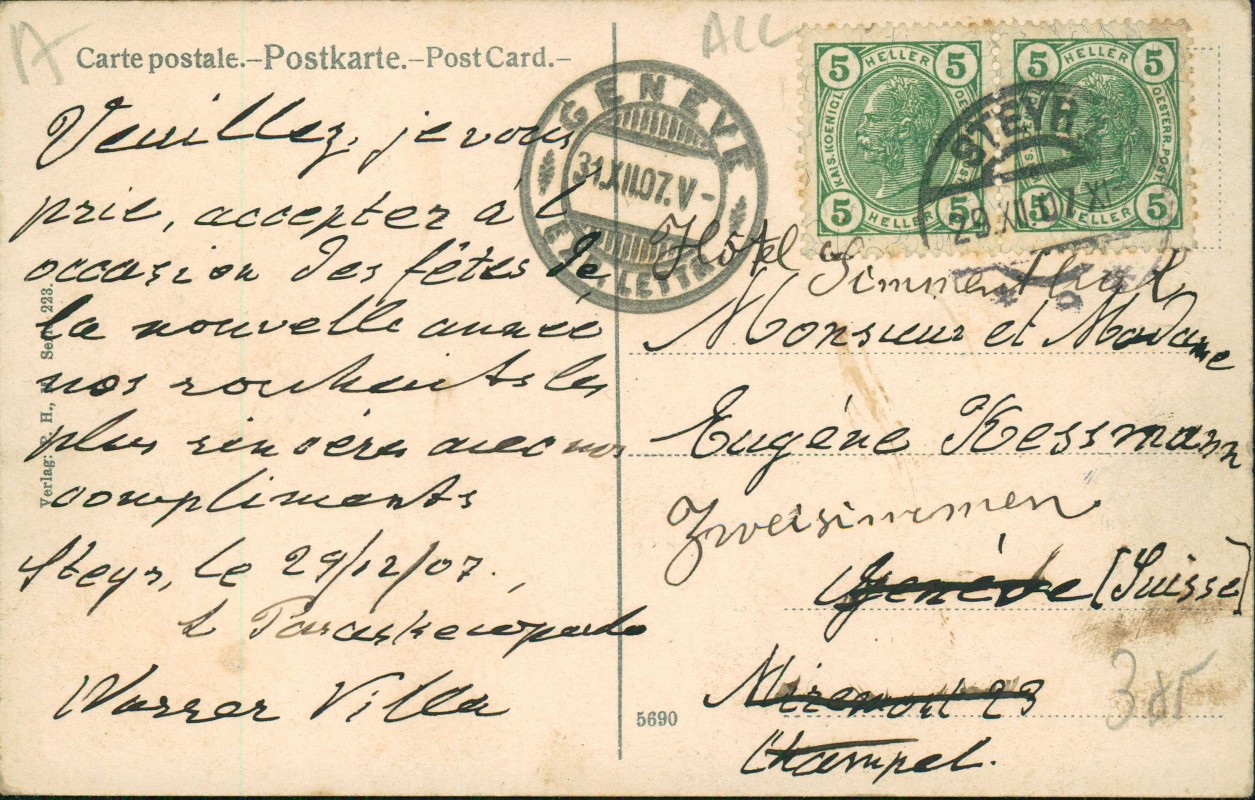 Carte postale.–Postkarte.–Post Card.–
Veuillez, je vous
prie, accepter à l'
occasion des fêtes de
la nouvelle année
nos souhaits les
plus sincères avec nos
compliments
Steyr, le 29/12/07.,
Wasser Villa
Verlag: H., Serie 223.
5690
ALL
GENEVE
31.XII.07. V –
EXP. LETTR.
5 HELLER 5
KAIS. KOENIGL. OESTERR. POST.
5 HELLER 5
5 HELLER 5
OESTERR. POST.
5 HELLER 5
STEYR
29.XII.07 XI
Hôtel
Monsieur et Madame
Eugène Kessmann
Zweisimmen
Genève [Suisse]
Miremont 23
Champel.